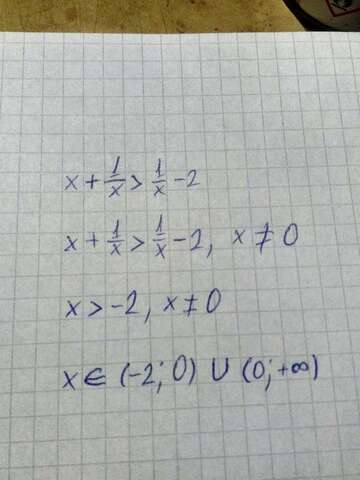 x + 1/x > 1/x - 2
x + 1/x > 1/x - 2, x ≠ 0
x > -2, x ≠ 0
x ∈ (-2; 0) ∪ (0; +∞)